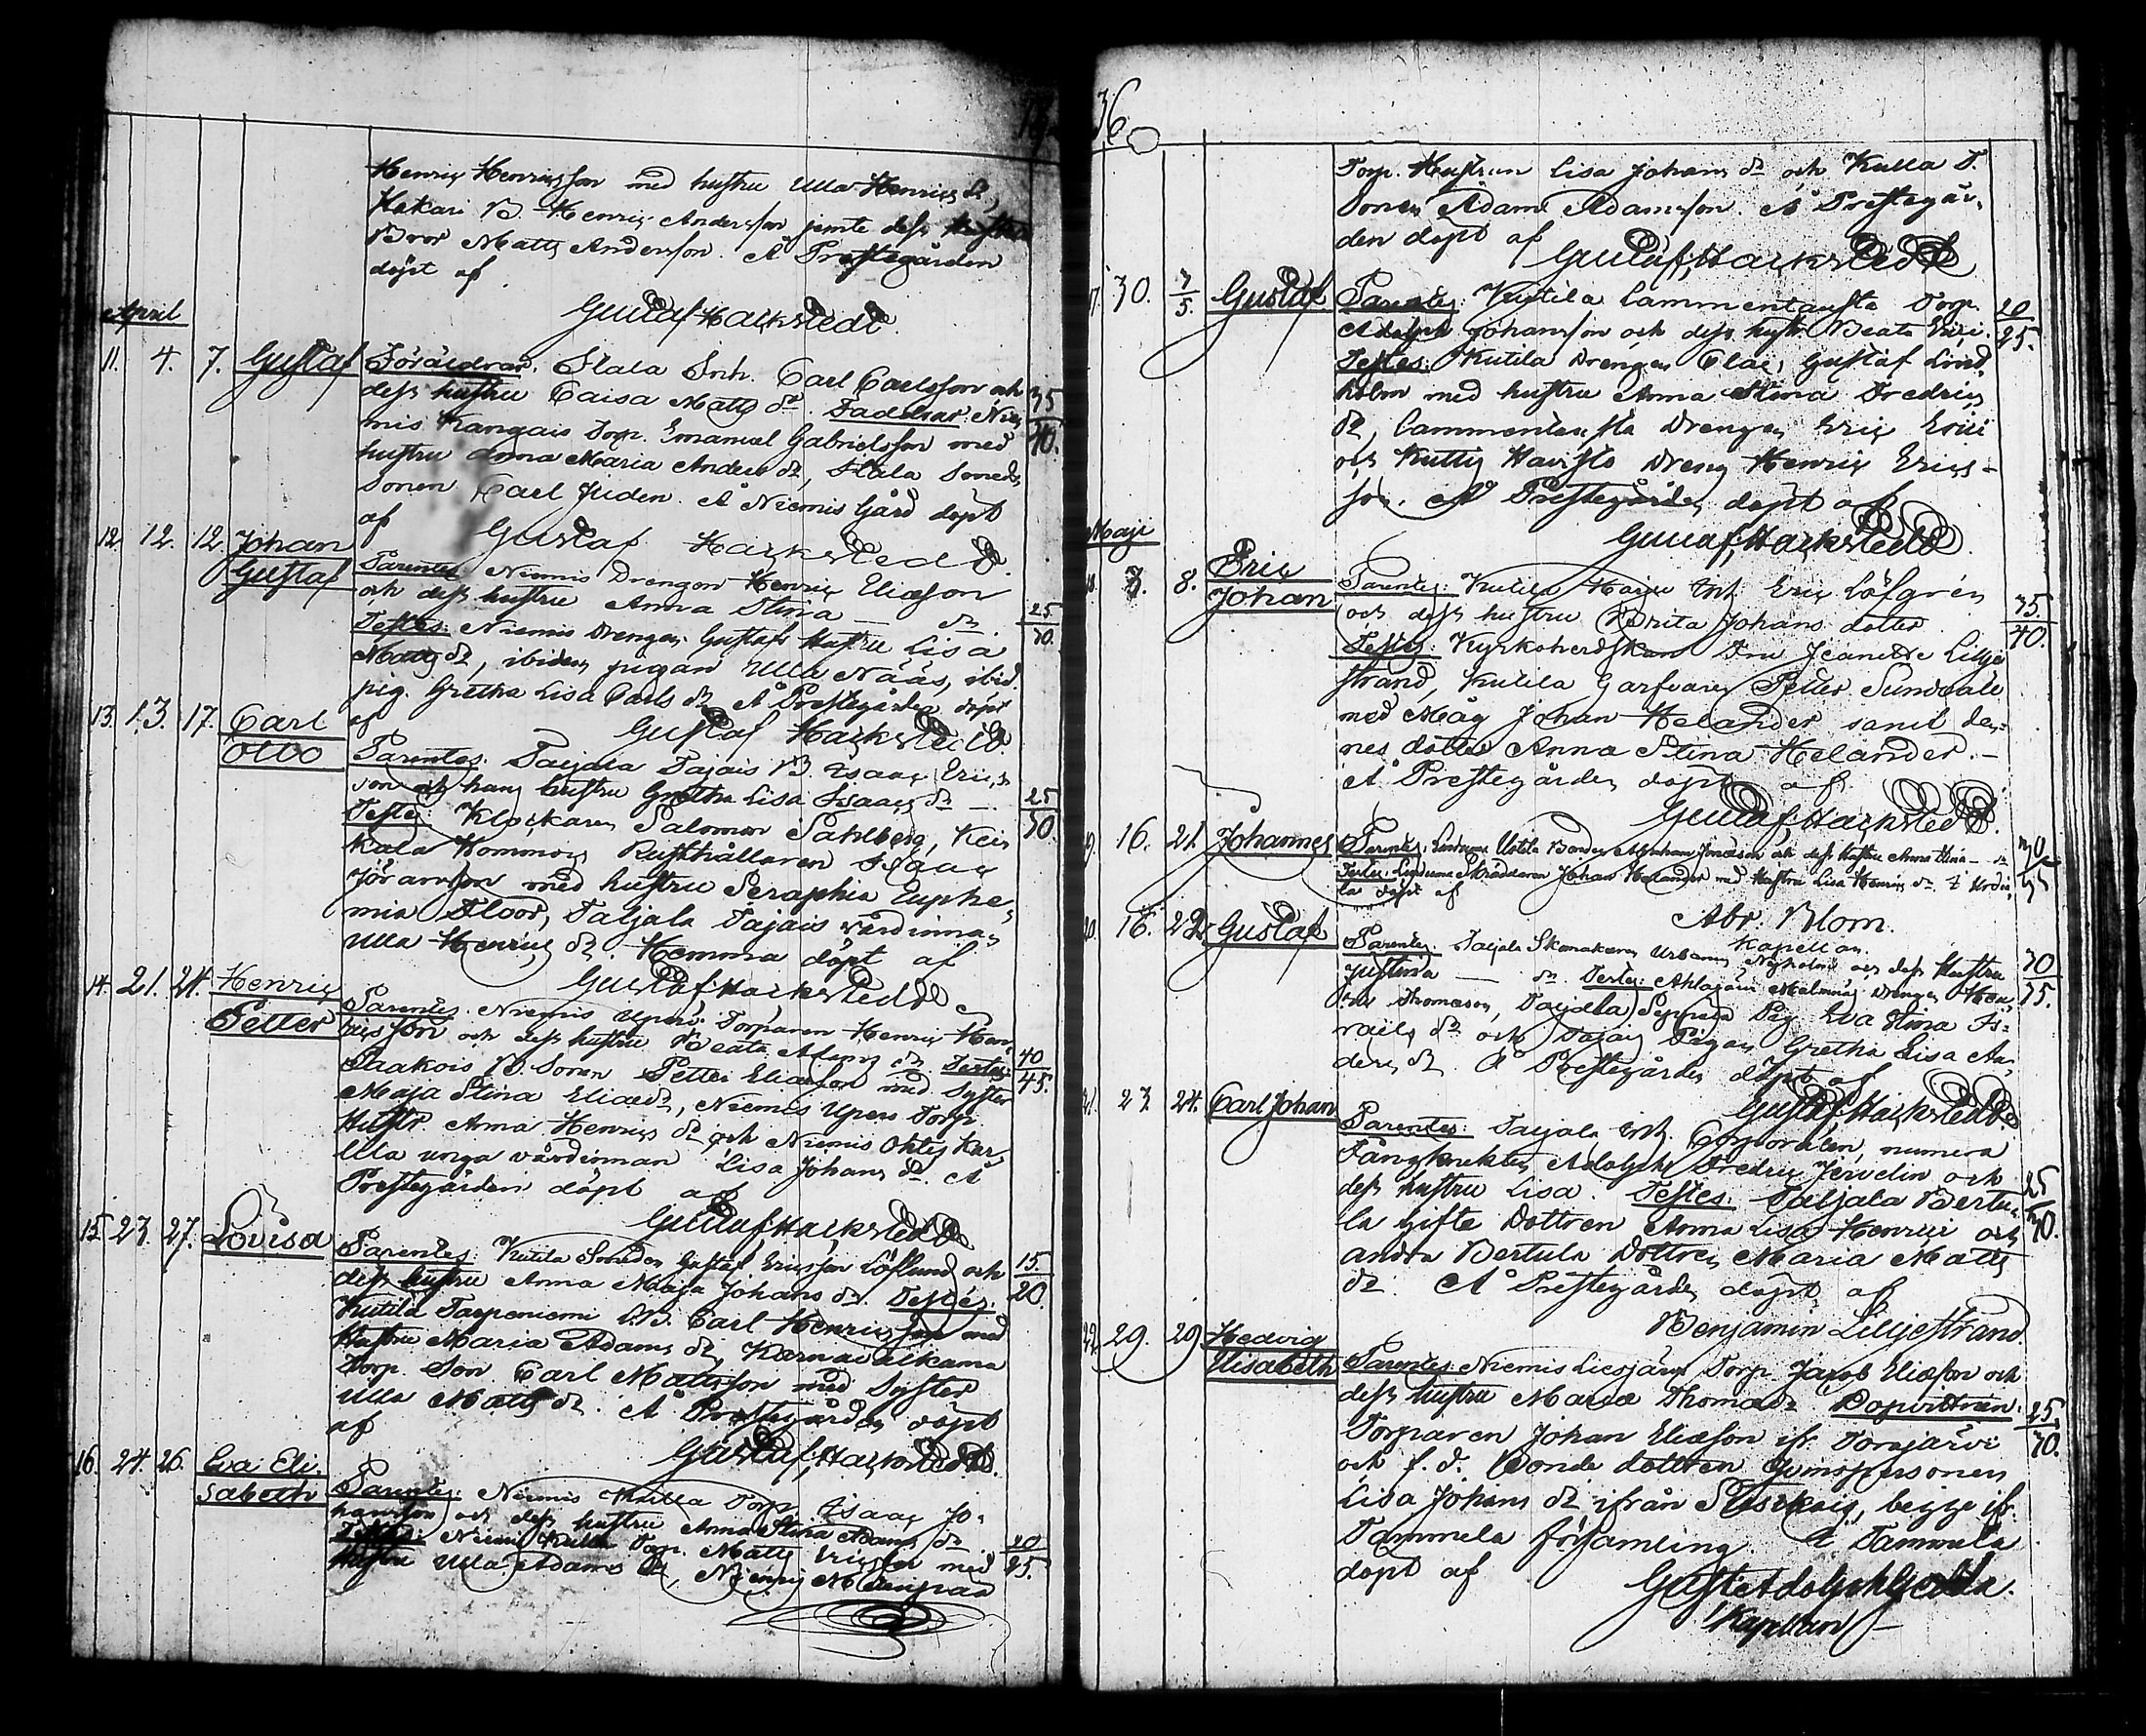 36
Henrix Henricsson med hustru Ulla Henrics dr,
Hakari B. Henrix Andersson jemte dess
Bror Matts Andersson. Å Prestegården
döpt af
Gustaf Hackstedt
April
11. 4. 7. Gustaf Föräldrar: Stala Inh. Carl Carlsson och
dess hustru Caisa Matts dr. Faddrar: Nie 35
mis Kangais Torp. Emanuel Gabrielsson med 40.
hustru Anna Maria Anders dr, Stala Smeds
Sonen Carl Juden. Å Niemis Gård döpt
af Gustaf Hackstedt.
12. 12. 12. Johan Gustaf
Parentes: Niemis Drengen Henrix Eliæson
och dess hustru Anna Stina — dr. 25
Testes: Niemis Drengen Gustafs Hustru Lisa 30.
Matts dr, ibidem pigan Ulla Nääs, ibid.
pig. Gretha Lisa Carls dr. Å Prestegården döpt
af Gustaf Hackstedt
13. 13. 17. Carl Otto
Parentes: Taljala Tajais B. Isaac Erics
son och hans hustru Gretha Lisa Isaacs dr — 25
Testes: Klockaren Salomon Sahlberg, Kei 30.
kala Hommois Rusthållaren Isaac
Jöransson med hustru Seraphia Euphe
mia Floor, Taljala Tajais värdinna
Ulla Henrics dr. Hemma döpt af
Gustaf Hackstedt
14. 21. 24. Henrix Petter
Parentes: Niemis Torparen Henrix Hen
ricsson och dess hustru Beata Adams dr. Testes: 40
Paakois B. Sonen Petter Eliæson med Syster 45.
Maja Stina Eliædr, Niemis Torp.
Hustr Anna Henrics dr och Niemis
Ulla unga värdinnan Lisa Johans dr. Å
Prestegården döpt af
Gustaf Hackstedt
15. 23. 27. Lovisa
Parentes: Kutila Smeden Gustaf Ericsson Löflund och 15.
dess hustru Anna Maja Johans dr. Testes: 20.
Kutila Tarpeniemi B. Carl Henricsson med
Hustru Maria Adams dr,
Torp. Son Carl Mattsson med Syster
Ulla Matts dr. Å Prestegården döpt
af
Gustaf Hackstedt.
16. 24. 26. Eva Eli
sabeth
Parentes: Niemis Kulla Torp. Isaac Jo
hansson och dess hustru Anna Stina Adams dr. 20
Testes: Niemis Kulla Torp. Matts Ericsson med 25.
Hustru Ulla Adams dr, Niemis
Torp. Hustrun Lisa Johans dr och Kulla T.
Sonen Adam Adamsson. Å Prestegår
den döpt af
Gustaf Hackstedt
17. 30. 3/5. Gustaf
Parentes: Kutila Lammentausta Torp. 20
Adolph Johansson och dess hustr Beata Erics. 25.
Testes: Kutila Drengen Clas Gustaf Lind
holm med hustru Anna Stina Fredrics
dr, Lammentausta Drengen Eric Erici
och Kuttis Havisto Dreng Henrix Erics-
son. Å Prestegården döpt af
Gustaf Hackstedt.
Maji
18. 3. 8. Eric
Johan
Parentes: Kutila Inh. Eric Löfgrén
och dess hustru Brita Johans dotter 35.
Testes: Kyrkoherdskan Fru Jeanette Lilje 40.
strand, Kutila Garfvaren Petter Sundvall
med Måg Johan Helander samt den
nes dotter Anna Stina Helander. —
Å Prestegården döpt af
Gustaf Hackstedt.
19. 16. 21. Johannes
Parentes: Bonden Abraham Jonasson och dess hustru Anna Stina — dr 30
Testes: Skräddaren Johan Helander med Hustru Lisa Henrics dr. I Urdia 35
la döpt af
Abr. Blom
Kapellan
20. 18. 22. Gustaf
Parentes: Taljala Skomakaren Urban Nyholm och dess Hustru 30
Justina — dr. Testes: Drengen Hen 35.
ric Thomasson, Taljala Seppälä Pig. Eva Stina Is
raels dr och Tajais Pigan Gretha Lisa An
ders dr. Å Prestegården döpt af
Gustaf Hackstedt
21. 23. 24. Carl Johan
Parentes: Taljala Inh. Corporalen, numera
Fångknekten Adolph Fredric Jerwelin och
dess hustru Lisa. Testes: Taljala Bertu 25
la Gifte Dottren Anna Lisa Henrici och 30.
andra Bertula Dottren Maria Matts
dr. Å Prestegården döpt af
Benjamin Liljestrand
22. 29. 29. Hedvig
Elisabeth
Parentes: Niemis Liesjärvi Torp. Jacob Eliæson och
dess hustru Maria Thomædr. Dopvittnen: 25
Torparen Johan Eliæson ifr. Torajärvi 30.
och f. d. Bonde dottren Qvinspersonen
Lisa Johans dr ifrån begge ifr.
Tammela församling. I Tammela
döpt af
Gust. Adolph
Kapellan